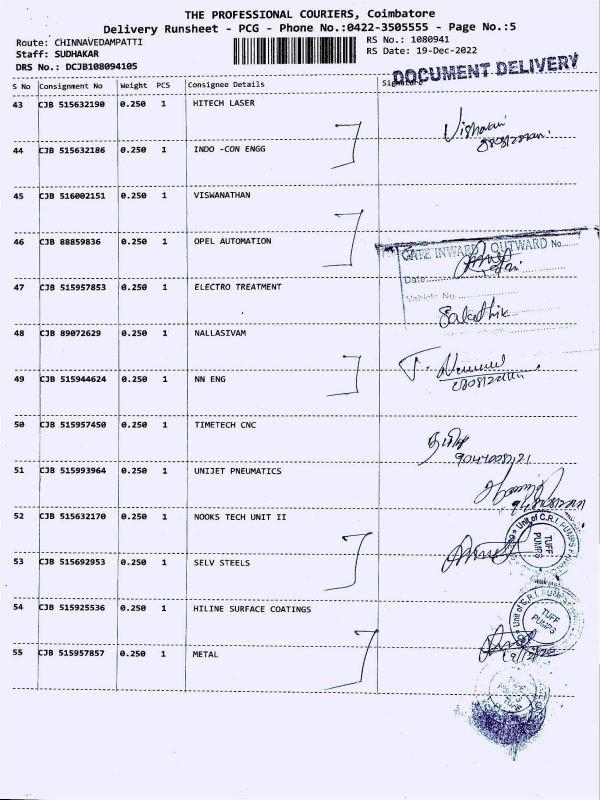 THE PROFESSIONAL COURIERS, Coimbatore
Delivery Runsheet - PCG - Phone No.:0422-3505555 - Page No.:5
Route: CHINNAVEDAMPATTI
Staff: SUDHAKAR
DRS No.: DCJB108094105
RS No.: 1080941
RS Date: 19-Dec-2022
DOCUMENT DELIVERY
S No Consignment No Weight PCS Consignee Details Signature
43 CJB 515632190 0.250 1 HITECH LASER
44 CJB 515632186 0.250 1 INDO -CON ENGG
45 CJB 516002151 0.250 1 VISWANATHAN
46 CJB 88859836 0.250 1 OPEL AUTOMATION
GATE INWARD / OUTWARD No.
Date:
47 CJB 515957853 0.250 1 ELECTRO TREATMENT
Vehicle No.
48 CJB 89072629 0.250 1 NALLASIVAM
49 CJB 515944624 0.250 1 NN ENG
50 CJB 515957450 0.250 1 TIMETECH CNC
51 CJB 515993964 0.250 1 UNIJET PNEUMATICS
52 CJB 515632170 0.250 1 NOOKS TECH UNIT II
Unit of C.R.I. PUMPS
TUFF
PUMPS
53 CJB 515692953 0.250 1 SELV STEELS
54 CJB 515925536 0.250 1 HILINE SURFACE COATINGS
Unit of C.R.I. PUMPS
TUFF
PUMPS
55 CJB 515957857 0.250 1 METAL